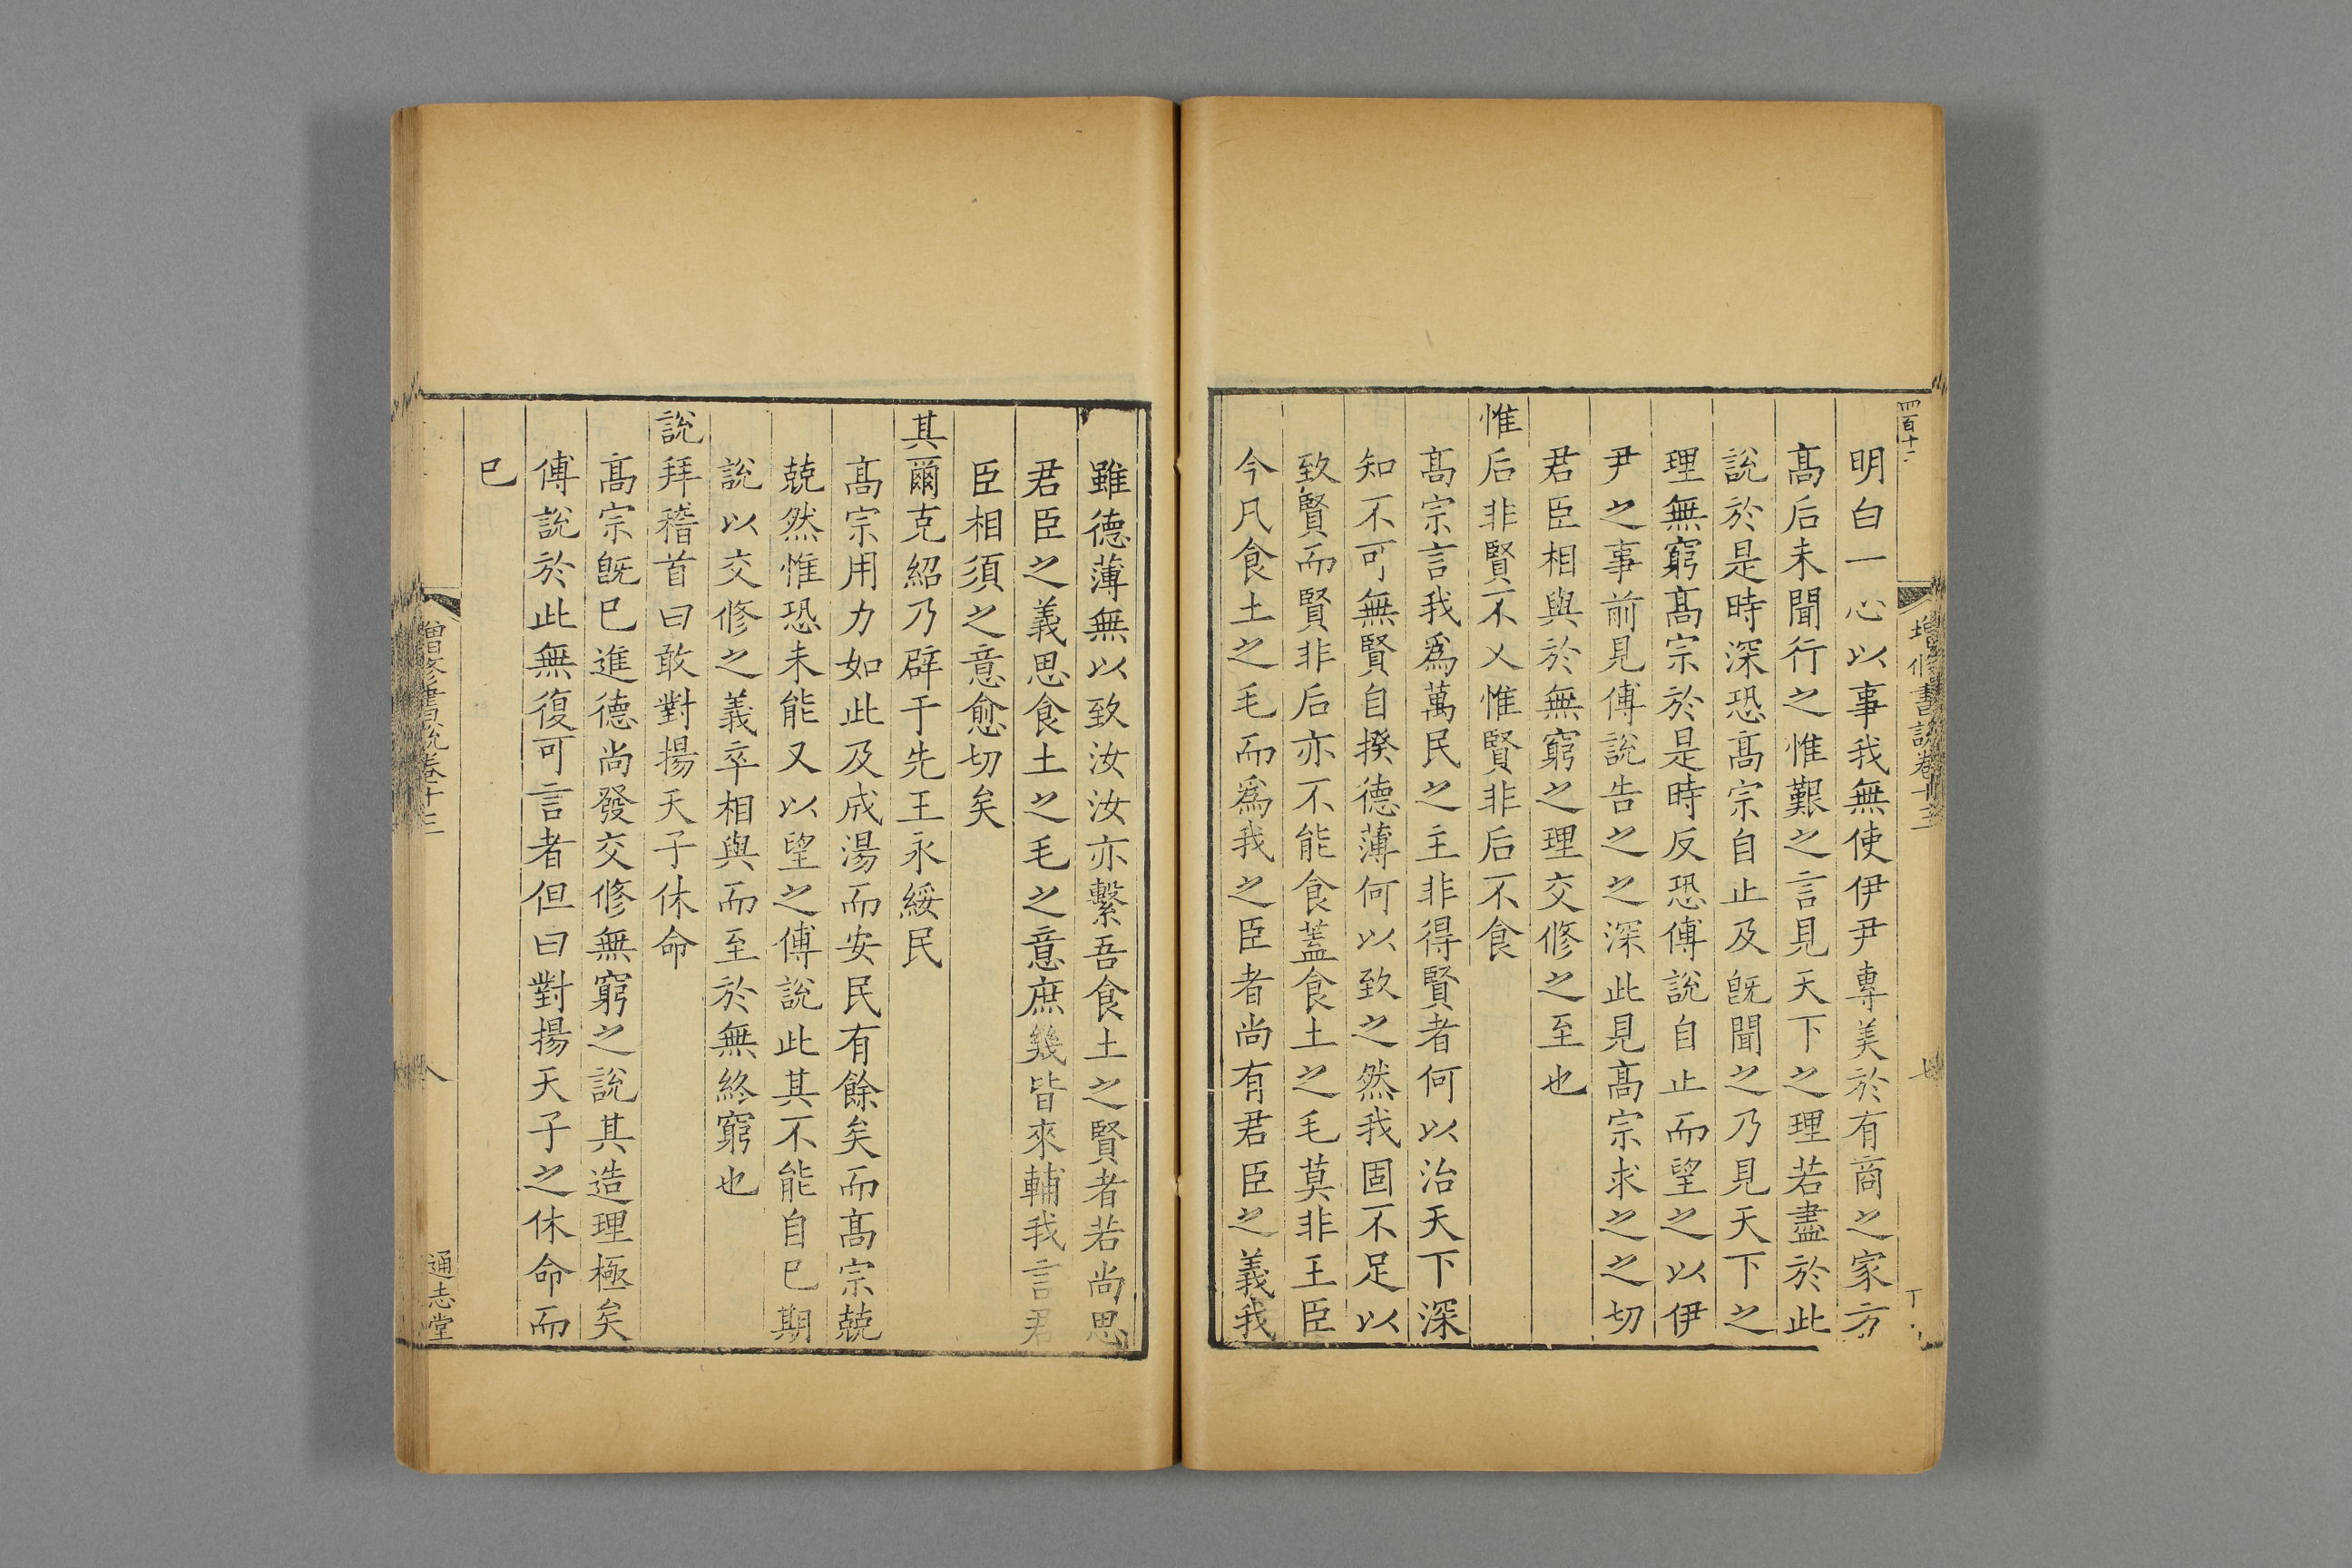 明白一心以事我無使伊尹專美於有商之家方
髙后未聞行之惟艱之言見天下之理若盡於此
說於是時深恐髙宗自止及旣聞之乃見天下之
理無窮髙宗於是時反恐傅說自止而望之以伊
尹之事前見傅說告之之深此見髙宗求之之切
君臣相與於無窮之理交修之至也
惟后非賢不乂惟賢非后不食
髙宗言我爲萬民之主非得賢者何以治天下深
知不可無賢自揆德薄何以致之然我固不足以
致賢而賢非后亦不能食葢食土之毛莫非王臣
今凡食土之毛而爲我之臣者尚有君臣之義我
雖德薄無以致汝汝亦繫吾食土之賢者若尚思
君臣之義思食土之毛之意庶幾皆來輔我言君
臣相須之意愈切矣
其爾克紹乃辟于先王永綏民
髙宗用力如此及成湯而安民有餘矣而髙宗兢
兢然惟恐未能又以望之傅說此其不能自已期
說以交修之義卒相與而至於無終窮也
說拜稽首曰敢對揚天子休命
髙宗旣已進德尚發交修無窮之說其造理極矣
傅說於此無復可言者但曰對揚天子之休命而
已
增修書說卷十三
八
通志堂